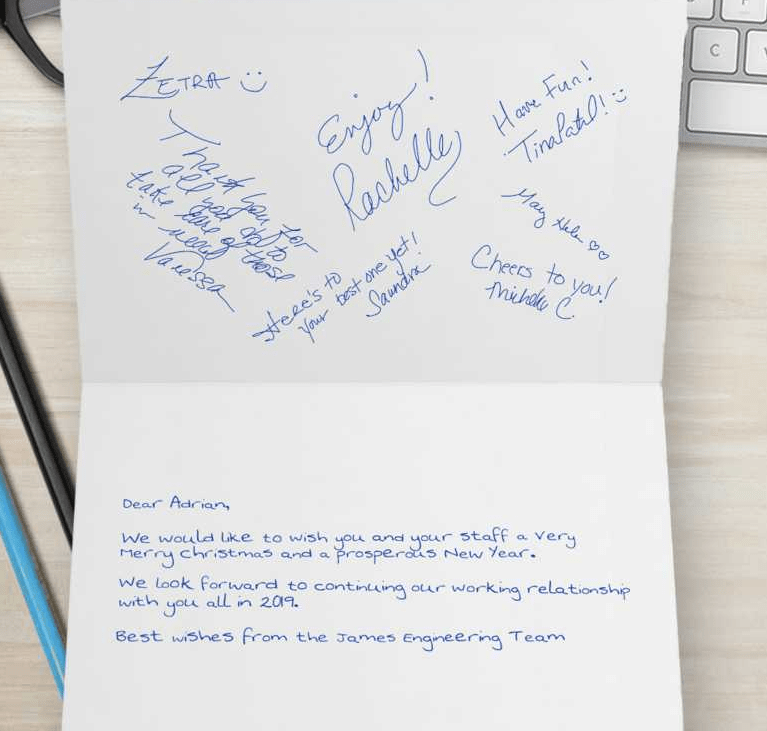 ZETRA
Thank you for
all you do to
take care of those
in need
Vanessa
Enjoy!
Rachelle
Have Fun!
Tina Patel!
Here's to
your best one yet!
Saundra
May Helen
Cheers to you!
Michelle C.
Dear Adrian,
We would like to wish you and your staff a very
Merry Christmas and a prosperous New Year.
We look forward to continuing our working relationship
with you all in 2019.
Best wishes from the James Engineering Team
C